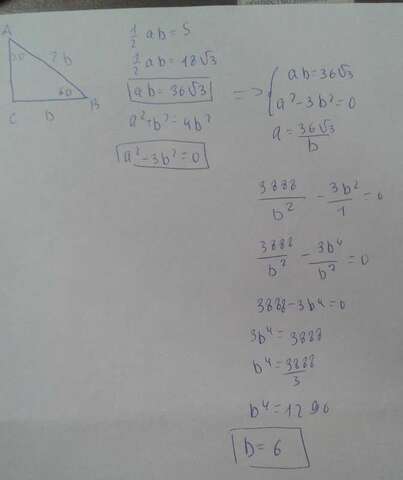 A
30
2b
60
C
b
B
1/2 ab = S
1/2 ab = 18√3
ab = 36√3
a² + b² = 4b²
a² - 3b² = 0
=> { ab = 36√3
a² - 3b² = 0
a = 36√3/b
3888/b² - 3b²/1 = 0
3888/b² - 3b⁴/b² = 0
3888 - 3b⁴ = 0
3b⁴ = 3888
b⁴ = 3888/3
b⁴ = 1296
b = 6